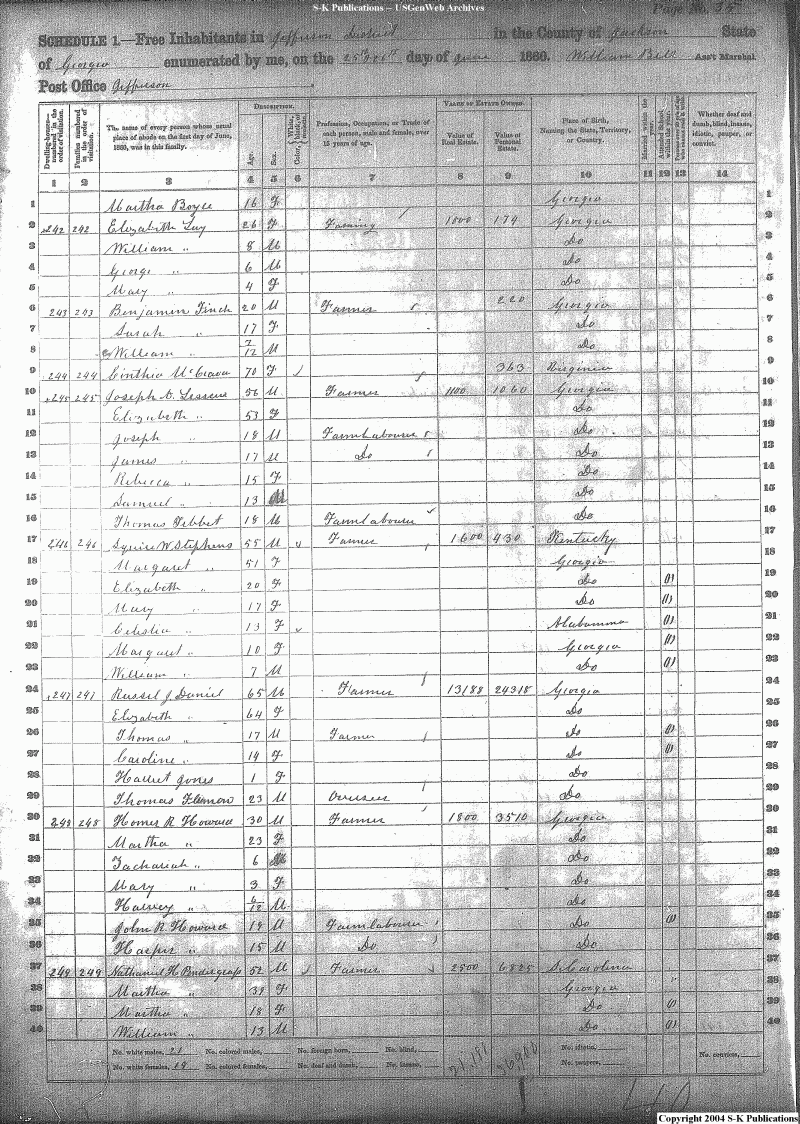 S-K Publications – USGenWeb Archives
Page No. 35
SCHEDULE 1.—Free Inhabitants in Jefferson District in the County of Jackson State
of Georgia enumerated by me, on the 25th day of June 1860. William Bell Ass't Marshal
Post Office Jefferson
Dwelling-houses numbered in the order of visitation. Families numbered in the order of visitation. The name of every person whose usual place of abode on the first day of June, 1860, was in this family. DESCRIPTION. Age. Sex. Color, Profession, Occupation, or Trade of each person, male and female, over 15 years of age. VALUE OF ESTATE OWNED. Value of Real Estate. Value of Personal Estate. Place of Birth, Naming the State, Territory, or Country. Married within the year. Attended School within the year. Whether deaf and dumb, blind, insane, idiotic, pauper, or convict.
1 2 3 4 5 6 7 8 9 10 11 12 13 14
1 Martha Boyce 16 F Georgia 1
2 242 242 Elizabeth Lay 26 F Farming 1000 179 Georgia 2
3 William " 8 M Do 3
4 George " 6 M Do 4
5 Mary " 4 F Do 5
6 243 243 Benjamin Finch 20 M Farmer 220 Georgia 6
7 Sarah " 17 F Do 7
8 William " 7/12 M Do 8
9 244 244 Cinthia 70 F 363 Virginia 9
10 245 245 Joseph 56 M Farmer 1100 1060 Georgia 10
11 Elizabeth " 53 F Do 11
12 Joseph " 18 M Farm Labourer Do 12
13 James " 17 M Do Do 13
14 Rebecca " 15 F Do 14
15 Samuel " 13 M Do 15
16 Thomas 18 M Farm Labourer Do 16
17 246 246 Squire W Stephens 55 M Farmer 1600 430 Kentucky 17
18 Margaret " 51 F Georgia 18
19 Elizabeth " 20 F Do (1) 19
20 Mary " 17 F Do (1) 20
21 Celestia " 13 F Alabamma (1) 21
22 Margaret " 10 F Georgia (1) 22
23 William " 7 M Do (1) 23
24 247 247 Russel J. Daniel 65 M Farmer 13188 24318 Georgia 24
25 Elizabeth " 64 F Do 25
26 Thomas " 17 M Farmer Do (1) 26
27 Caroline " 14 F Do (1) 27
28 Harriet Jones 1 F Do 28
29 Thomas 23 M Overseer Do 29
30 248 248 Homer R. Howard 30 M Farmer 1800 3510 Georgia 30
31 Martha " 23 F Do 31
32 Zachariah " 6 M Do 32
33 Mary " 3 F Do 33
34 Harvey " 6/12 M Do 34
35 John R Howard 18 M Farm labourer Do (1) 35
36 Harper " 15 M Do Do 36
37 249 249 Nathaniel H Pendergrass 52 M Farmer 2500 6825 S. Carolina 37
38 Martha " 39 F Georgia 38
39 Martha " 18 F Do (1) 39
40 William " 13 M Do (1) 40
No. white males, 21 No. colored males, No. foreign born, No. blind, No. idiotic, No. convicts,
No. white females, 19 No. colored females, No. deaf and dumb, No. insane, No. paupers,
40
Copyright 2004 S-K Publications